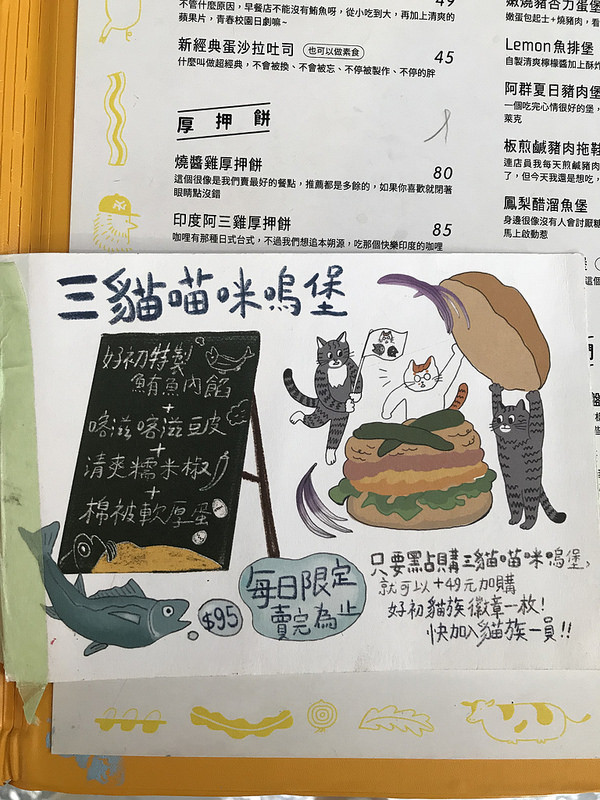 49
不管什麼原因，早餐店不能沒有鮪魚呀，從小吃到大，再加上清爽的
蘋果片，青春校園日劇嘛~
新經典蛋沙拉吐司 也可以做素食 45
什麼叫做超經典，不會被換、不會被忘、不停被製作、不停的胖
厚押餅
燒醬雞厚押餅 80
這個很像是我們賣最好的餐點，推薦都是多餘的，如果你喜歡就閉著
眼睛點沒錯
印度阿三雞厚押餅 85
咖哩有那種日式台式，不過我們想追本朔源，吃那個快樂印度的咖哩
嫩燒豬否力蛋堡
嫩蛋包起士+燒豬肉，看
Lemon魚排堡
自製清爽檸檬醬加上酥炸
阿群夏日豬肉堡
一個吃完心情很好的堡，
萊克
板煎鹹豬肉拖鞋
連店員我每天煎鹹豬肉
了，但今天我還是想吃，
鳳梨醋溜魚堡
身邊很像沒有人會討厭糖
馬上啟動惹
三貓喵咪嗚堡
好初特製
鮪魚內餡
+
喀滋喀滋豆皮
+
清爽糯米椒
+
棉被軟厚蛋
$95
每日限定
賣完為止
只要點購三貓喵咪嗚堡，
就可以+49元加購
好初貓族徽章一枚！
快加入貓族一員!!